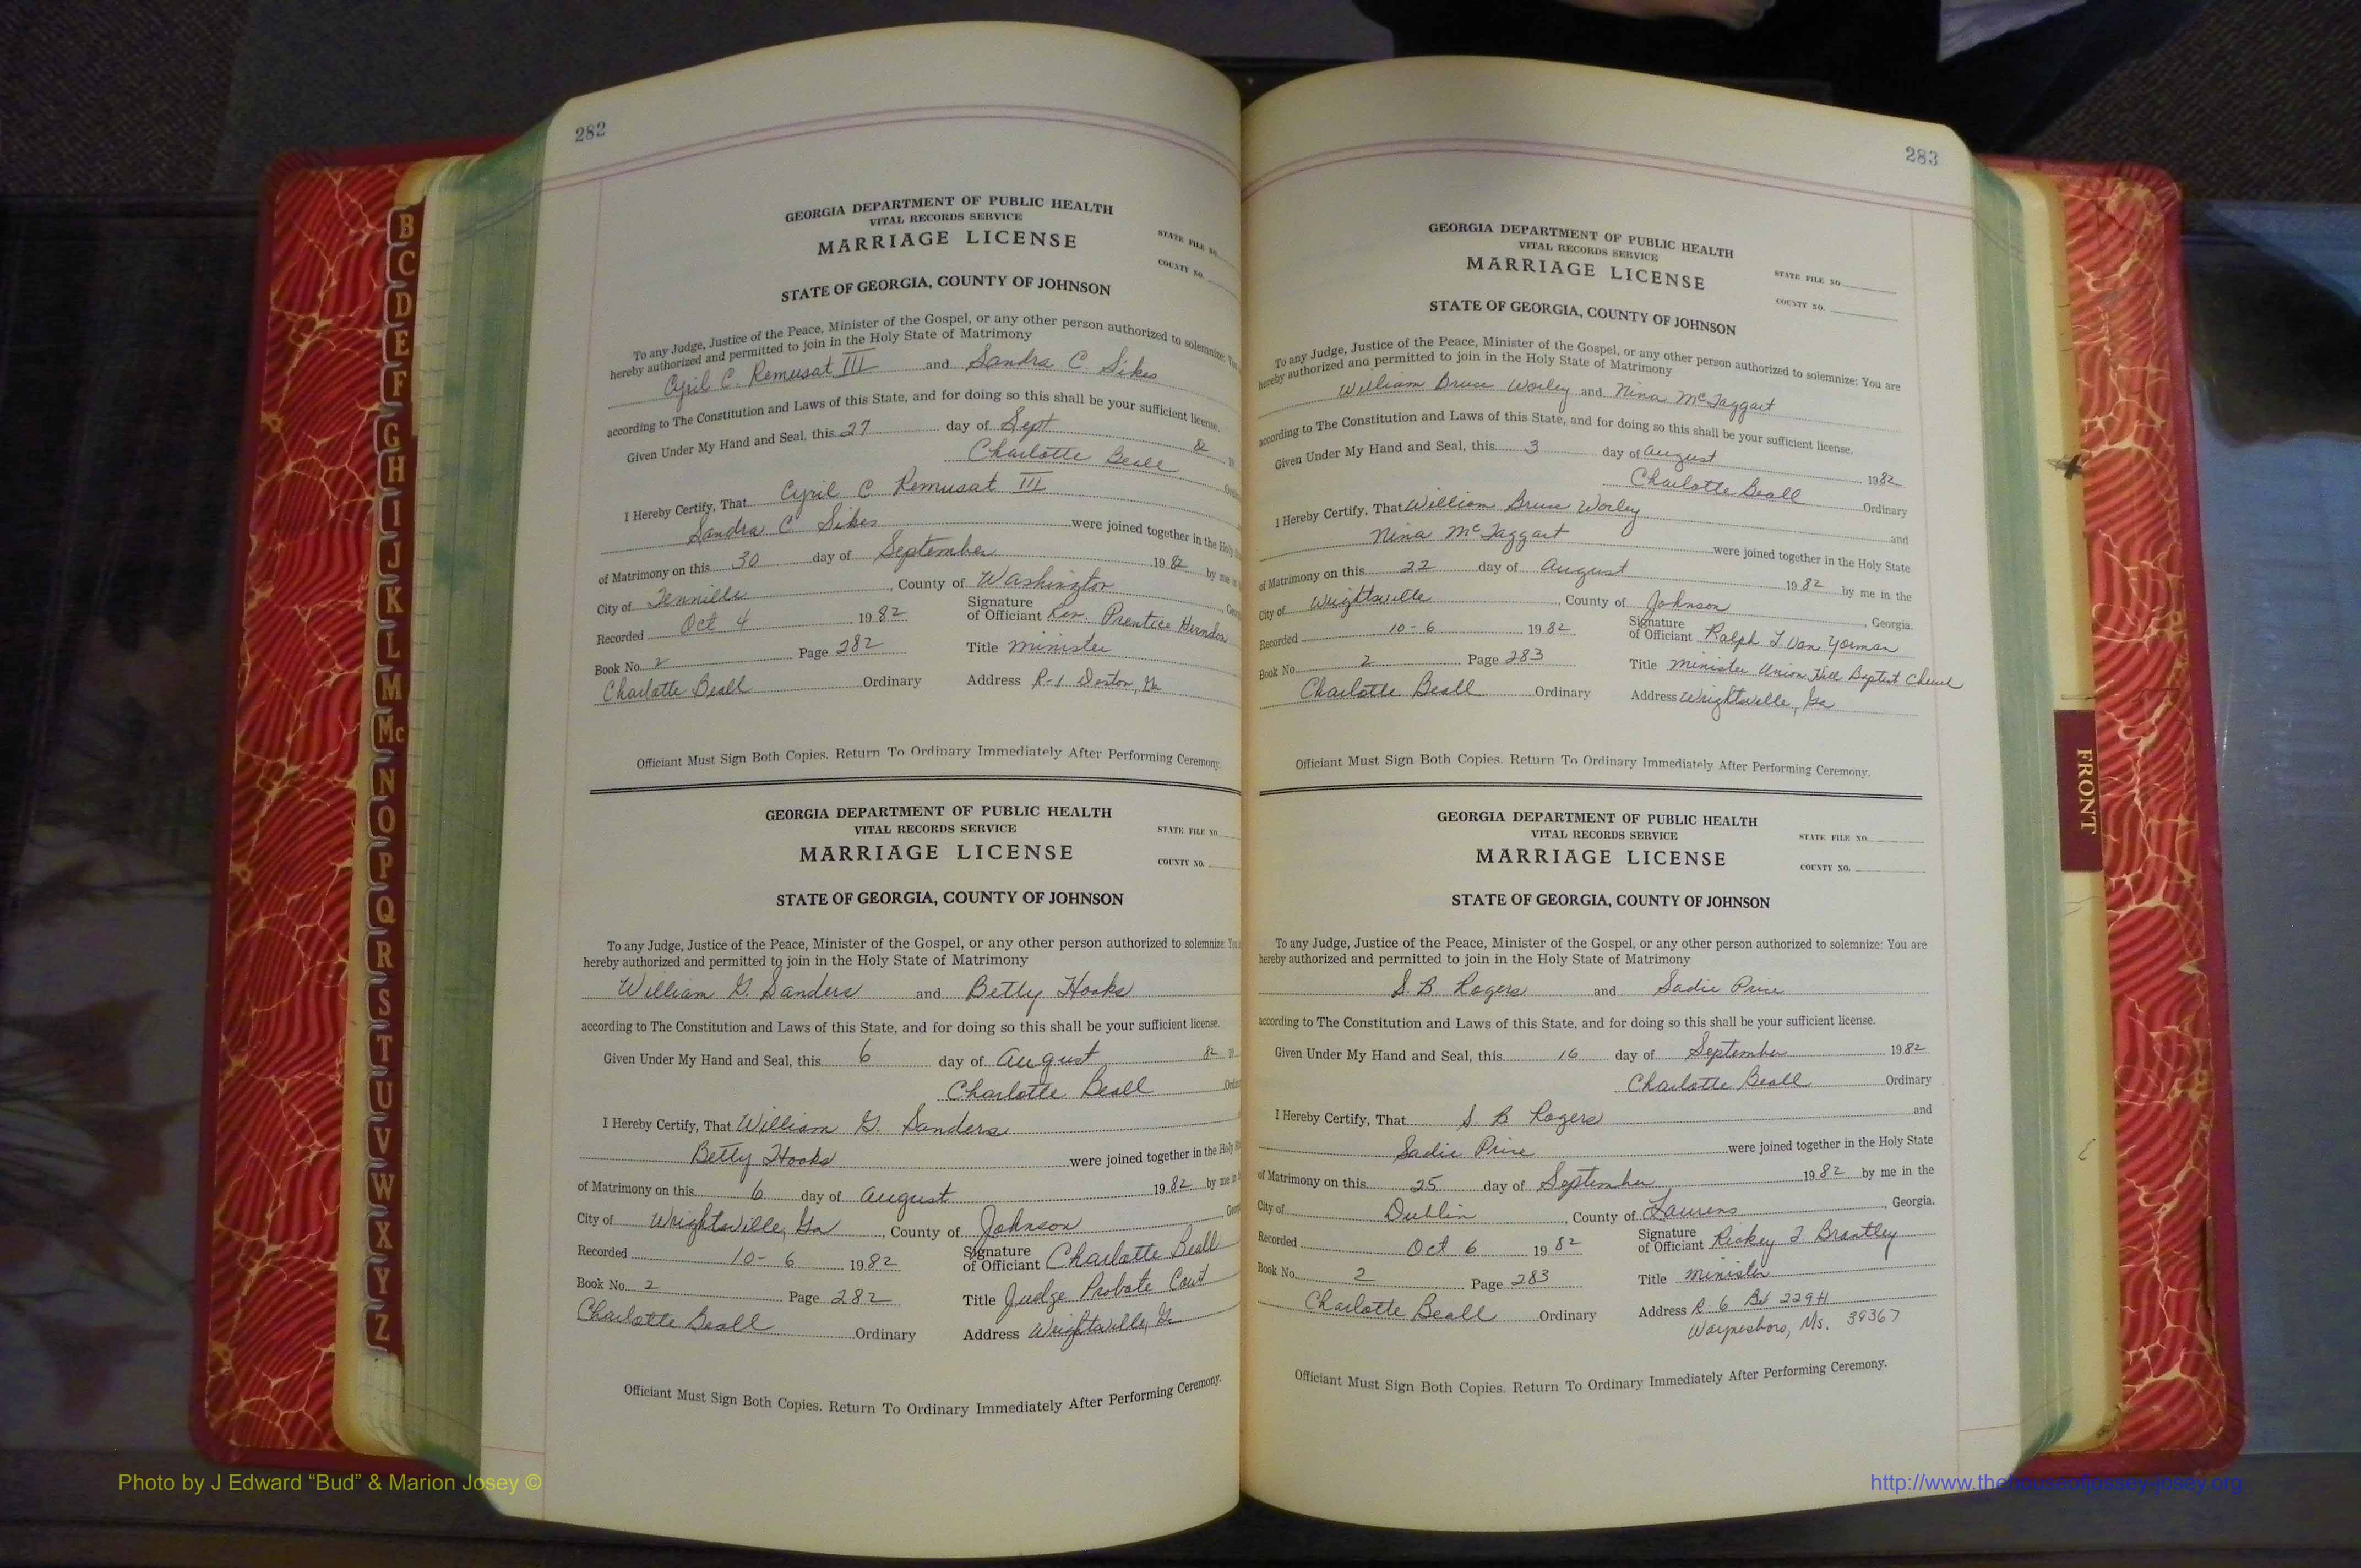 282
GEORGIA DEPARTMENT OF PUBLIC HEALTH
VITAL RECORDS SERVICE
MARRIAGE LICENSE
STATE FILE NO.
COUNTY NO.
STATE OF GEORGIA, COUNTY OF JOHNSON
To any Judge, Justice of the Peace, Minister of the Gospel, or any other person authorized to solemnize: You
hereby authorized and permitted to join in the Holy State of Matrimony
Cyril C. Remusat III and Sandra C. Sikes
according to The Constitution and Laws of this State, and for doing so this shall be your sufficient license.
Given Under My Hand and Seal, this 27 day of Sept 82
Charlotte Beall
I Hereby Certify, That Cyril C Remusat III
Sandra C. Sikes were joined together in the Holy
of Matrimony on this 30 day of September 1982 by me in
City of Tennille, County of Washington
Recorded Oct 4 1982 Signature of Officiant Rev. Prentice Herndon
Book No. 2 Page 282 Title minister
Charlotte Beall Ordinary Address R-1 Ga
Officiant Must Sign Both Copies. Return To Ordinary Immediately After Performing Ceremony.
GEORGIA DEPARTMENT OF PUBLIC HEALTH
VITAL RECORDS SERVICE
MARRIAGE LICENSE
STATE FILE NO.
COUNTY NO.
STATE OF GEORGIA, COUNTY OF JOHNSON
To any Judge, Justice of the Peace, Minister of the Gospel, or any other person authorized to solemnize: You
hereby authorized and permitted to join in the Holy State of Matrimony
William G. Sanders and Betty Hooks
according to The Constitution and Laws of this State, and for doing so this shall be your sufficient license.
Given Under My Hand and Seal, this 6 day of August 82
Charlotte Beall
I Hereby Certify, That William G. Sanders
Betty Hooks were joined together in the Holy
of Matrimony on this 6 day of August 1982 by me in
City of Wrightsville, Ga, County of Johnson
Recorded 10-6 1982 Signature of Officiant Charlotte Beall
Book No. 2 Page 282 Title Judge Probate Court
Charlotte Beall Ordinary Address Wrightsville, Ga
Officiant Must Sign Both Copies. Return To Ordinary Immediately After Performing Ceremony.
283
GEORGIA DEPARTMENT OF PUBLIC HEALTH
VITAL RECORDS SERVICE
MARRIAGE LICENSE
STATE FILE NO.
COUNTY NO.
STATE OF GEORGIA, COUNTY OF JOHNSON
To any Judge, Justice of the Peace, Minister of the Gospel, or any other person authorized to solemnize: You are
hereby authorized and permitted to join in the Holy State of Matrimony
William Bruce Worley and Nina McTaggart
according to The Constitution and Laws of this State, and for doing so this shall be your sufficient license.
Given Under My Hand and Seal, this 3 day of August 1982
Charlotte Beall Ordinary
I Hereby Certify, That William Bruce Worley and
Nina McTaggart were joined together in the Holy State
of Matrimony on this 22 day of August 1982 by me in the
City of Wrightsville, County of Johnson, Georgia.
Recorded 10-6 1982 Signature of Officiant Ralph J. Van Yorman
Book No. 2 Page 283 Title minister Union Hill Baptist Church
Charlotte Beall Ordinary Address Wrightsville, Ga
Officiant Must Sign Both Copies. Return To Ordinary Immediately After Performing Ceremony.
GEORGIA DEPARTMENT OF PUBLIC HEALTH
VITAL RECORDS SERVICE
MARRIAGE LICENSE
STATE FILE NO.
COUNTY NO.
STATE OF GEORGIA, COUNTY OF JOHNSON
To any Judge, Justice of the Peace, Minister of the Gospel, or any other person authorized to solemnize: You are
hereby authorized and permitted to join in the Holy State of Matrimony
S. B. Rogers and Sadie Price
according to The Constitution and Laws of this State, and for doing so this shall be your sufficient license.
Given Under My Hand and Seal, this 16 day of September 1982
Charlotte Beall Ordinary
I Hereby Certify, That S. B Rogers and
Sadie Price were joined together in the Holy State
of Matrimony on this 25 day of September 1982 by me in the
City of Dublin, County of Laurens, Georgia.
Recorded Oct 6 1982 Signature of Officiant Rickey J Brantley
Book No. 2 Page 283 Title minister
Charlotte Beall Ordinary Address R 6 Bx 229H
Waynesboro, Ms. 39367
Officiant Must Sign Both Copies. Return To Ordinary Immediately After Performing Ceremony.
B
C
D
E
F
G
H
I
J
K
L
M
Mc
N
O
P
Q
R
S
T
U
V
W
X
Y
Z
FRONT
Photo by J Edward “Bud” & Marion Josey ©
http://www.thehouseofjossey-josey.org